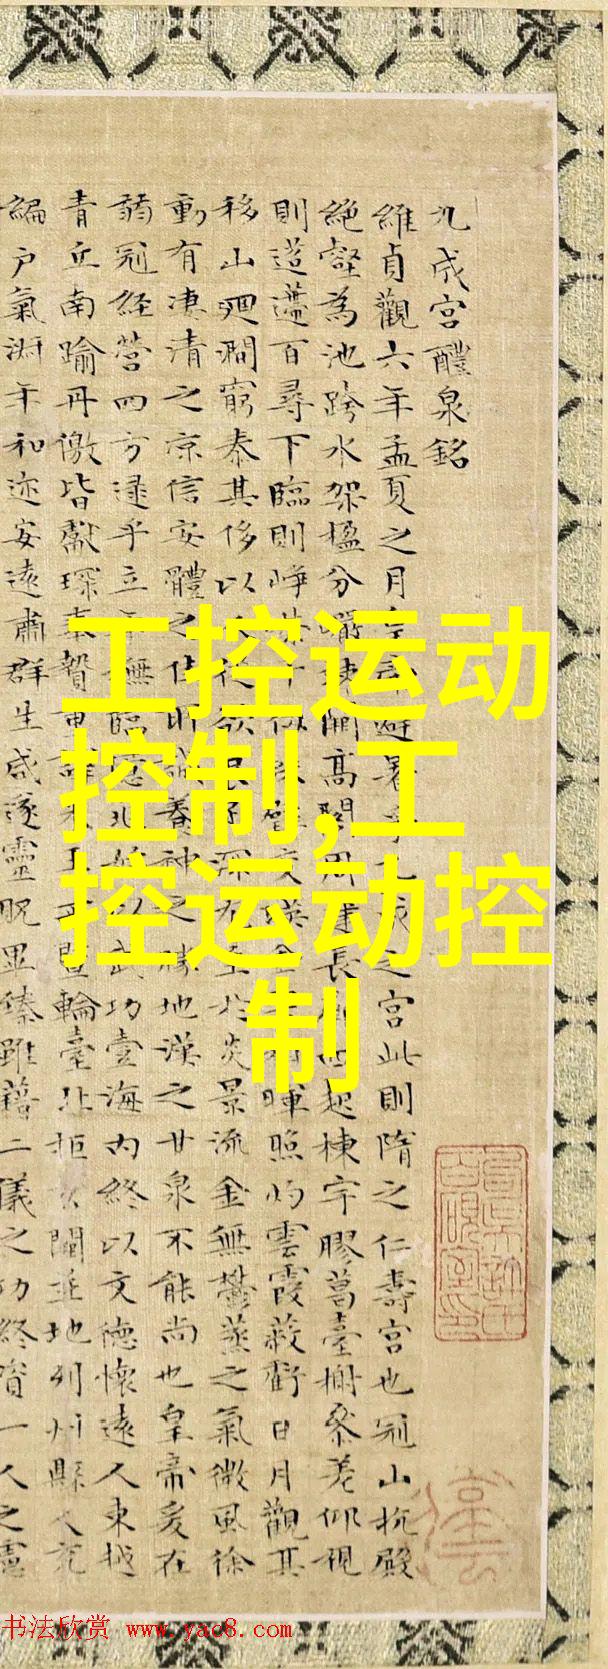 九成宮醴泉銘
維貞觀六年孟夏之月避暑乎之宮此則隋之仁壽宮也冠山抗殿
絕壑為池跨水架楹分巖竦闕高閣周建長廊四起棟宇膠葛臺榭參差仰視
則迢遰百尋下臨則崢千仞交暎金暉照灼雲霞蔽虧日月觀其
移山迴澗窮泰其侈以從欲深尤至於炎景流金無鬱蒸之氣微風徐
動有凄清之凉信安體之佳所誠養神之勝地漢之甘泉不能尚也皇帝爰在
弱冠經營四方逮乎立年撫臨億兆始以武功壹海內終以文德懷遠人東越
青丘南踰丹儌皆獻琛奉贄重譯來王西暨輪臺北拒玄闕並地列州縣人充
編戶氣淑年和迩安遠肅群生咸遂靈貺畢臻雖藉二儀之功終資一人之慮
工控运动
控制,工
控运动控
制
书法欣赏 www.yac8.com